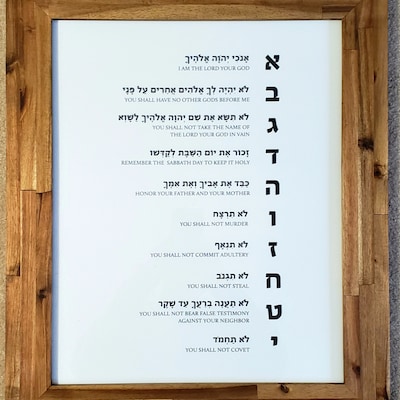 א
אנכי יהוה אלהיך
I AM THE LORD YOUR GOD
ב
לא יהיה לך אלהים אחרים על פני
YOU SHALL HAVE NO OTHER GODS BEFORE ME
ג
לא תשא את שם יהוה אלהיך לשוא
YOU SHALL NOT TAKE THE NAME OF
THE LORD YOUR GOD IN VAIN
ד
זכור את יום השבת לקדשו
REMEMBER THE SABBATH DAY TO KEEP IT HOLY
ה
כבד את אביך ואת אמך
HONOR YOUR FATHER AND YOUR MOTHER
ו
לא תרצח
YOU SHALL NOT MURDER
ז
לא תנאף
YOU SHALL NOT COMMIT ADULTERY
ח
לא תגנב
YOU SHALL NOT STEAL
ט
לא תענה ברעך עד שקר
YOU SHALL NOT BEAR FALSE TESTIMONY
AGAINST YOUR NEIGHBOR
י
לא תחמד
YOU SHALL NOT COVET